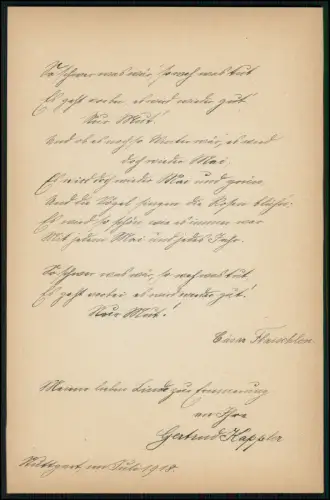 So schwer was wär, so weh was tut
Es geht vorbei es wird wieder gut!
Nur Mut!
Und ob es noch so Winter wär, es wird
doch wieder Mai.
Es wird doch wieder Mai und grün
Und die Vögel singen die Rosen blühn.
Es wird so schön wie es immer war
Mit jedem Mai und jedes Jahr.
So schwer was wär, so weh was tut
Es geht vorbei es wird wieder gut!
Nur Mut!
Cäsar Flaischlen
Meiner lieben zur Erinnerung
an Ihre
Gertrud Kappler
Stuttgart im Juli 1918.